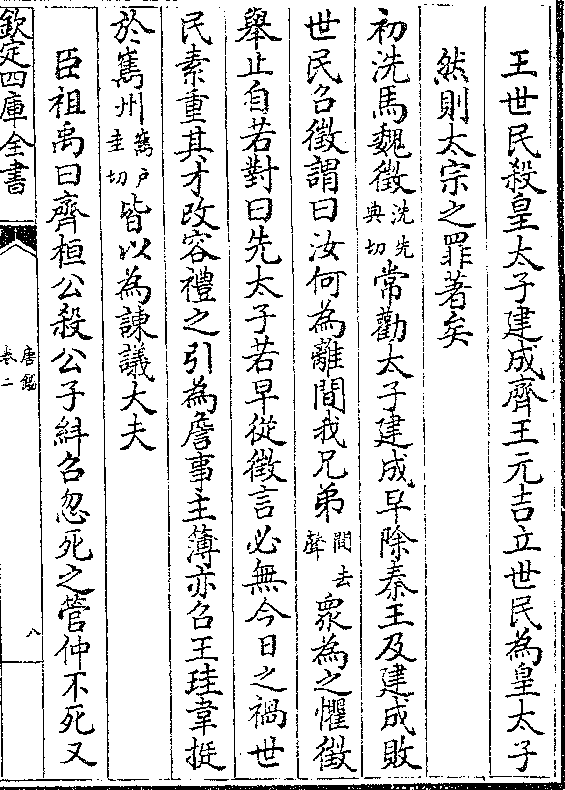 王世民殺皇太子建成齊王元吉立世民為皇太子
然則太宗之罪著矣
初洗馬魏徵洗先典切常勸太子建成早除秦王及建成敗
世民召徵謂曰汝何為離間我兄弟間去聲衆為之懼徵
舉止自若對曰先太子若早從徵言必無今日之禍世
民素重其才改容禮之引為詹事主簿亦召王珪韋挺
於嶲州嶲戶圭切皆以為諫議大夫
臣祖禹曰齊桓公殺公子糾召忽死之管仲不死又
欽定四庫全書
唐鑑
卷二
八